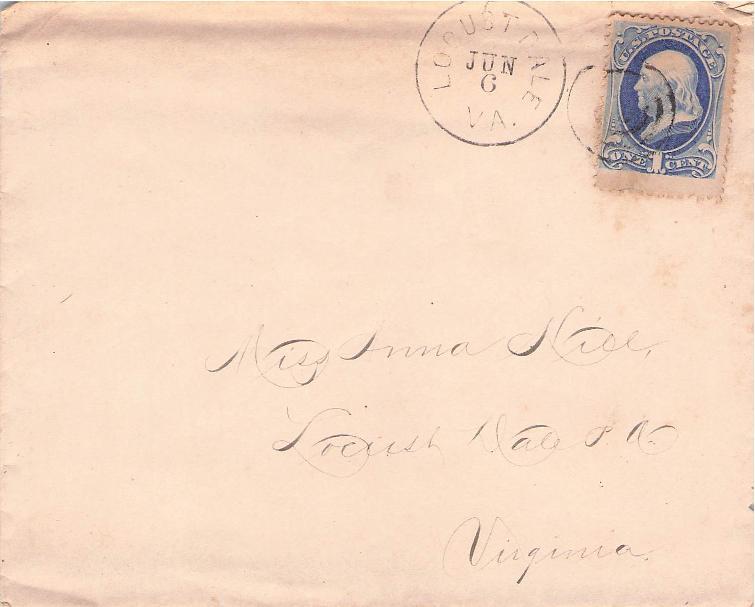 LOCUST DALE
JUN
6
VA.
U.S. POSTAGE
ONE 1 CENT
Miss Anna Hill,
Locust Dale P.O.
Virginia.